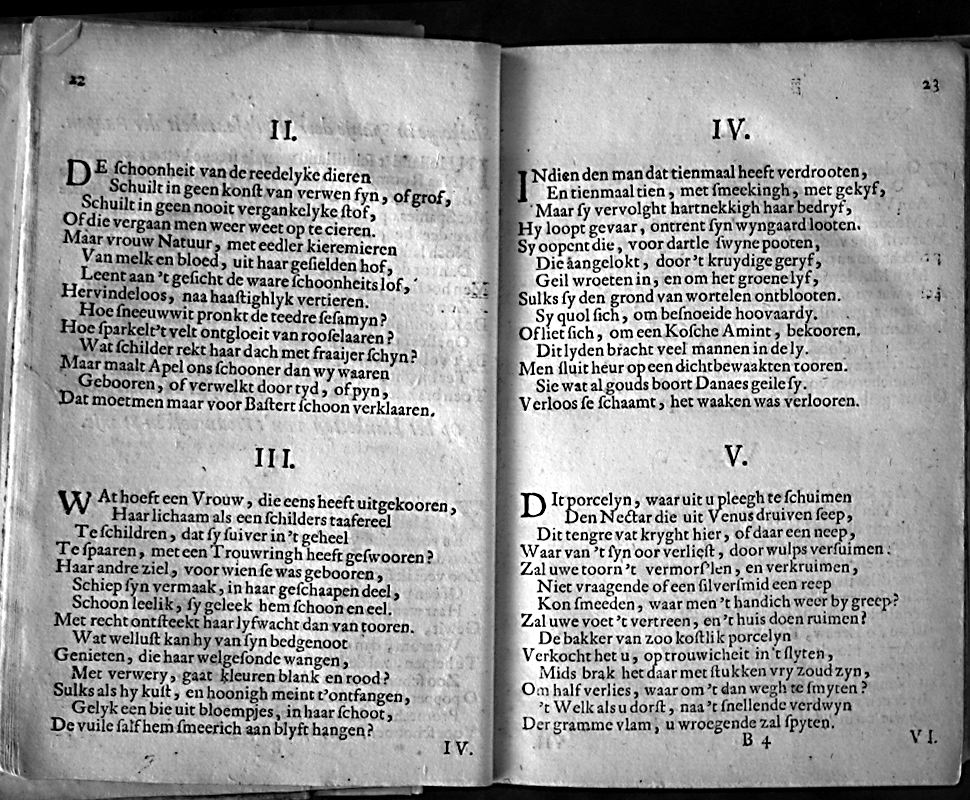 22
II.
DE ſchoonheit van de reedelyke dieren
Schuilt in geen konſt van verwen fyn, of grof,
Schuilt in geen nooit vergankelyke ſtof,
Of die vergaan men weer weet op te cieren.
Maar vrouw Natuur, met eedler kieremieren
Van melk en bloed, uit haar geſielden hof,
Leent aan 't geſicht de waare ſchoonheits lof,
Hervindeloos, naa haaſtighlyk vertieren.
Hoe ſneeuwwit pronkt de teedre ſeſamyn?
Hoe ſparkelt't velt ontgloeit van rooſelaaren?
Wat ſchilder rekt haar dach met fraaijer ſchyn?
Maar maalt Apel ons ſchooner dan wy waaren
Gebooren, of verwelkt door tyd, of pyn,
Dat moetmen maar voor Baſtert ſchoon verklaaren.
III.
WAt hoeft een Vrouw, die eens heeft uitgekooren,
Haar lichaam als een ſchilders taafereel
Te ſchildren, dat ſy ſuiver in 't geheel
Te ſpaaren, met een Trouwringh heeft geſwooren?
Haar andre ziel, voor wien ſe was gebooren,
Schiep ſyn vermaak, in haar geſchaapen deel,
Schoon leelik, ſy geleek hem ſchoon en eel.
Met recht ontſteekt haar lyfwacht dan van tooren.
Wat welluſt kan hy van ſyn bedgenoot
Genieten, die haar welgeſonde wangen,
Met verwery, gaat kleuren blank en rood?
Sulks als hy kuſt, en hoonigh meint t'ontfangen,
Gelyk een bie uit bloempjes, in haar ſchoot,
De vuile ſalf hem ſmeerich aan blyft hangen?
IV.
23
IV.
INdien den man dat tienmaal heeft verdrooten,
En tienmaal tien, met ſmeekingh, met gekyf,
Maar ſy vervolght hartnekkigh haar bedryf,
Hy loopt gevaar, ontrent ſyn wyngaard looten.
Sy oopent die, voor dartle ſwyne pooten,
Die aangelokt, door 't kruydige geryf,
Geil wroeten in, en om het groene lyf,
Sulks ſy den grond van wortelen ontblooten.
Sy quol ſich, om beſnoeide hoovaardy.
Of liet ſich, om een Koſche Amint, bekooren.
Dit lyden bracht veel mannen in de ly.
Men ſluit heur op een dichtbewaakten tooren.
Sie wat al gouds boort Danaes geile ſy.
Verloos ſe ſchaamt, het waaken was verlooren.
V.
DIt porcelyn, waar uit u pleegh te ſchuimen
Den Nectar die uit Venus druiven ſeep,
Dit tengre vat kryght hier, of daar een neep,
Waar van 't ſyn oor verlieſt, door wulps verſuimen.
Zal uwe toorn 't vermorſ'len, en verkruimen,
Niet vraagende of een ſilverſmid een reep
Kon ſmeeden, waar men 't handich weer by greep?
Zal uwe voet 't vertreen, en 't huis doen ruimen?
De bakker van zoo koſtlik porcelyn
Verkocht het u, op trouwicheit in 't ſlyten,
Mids brak het daar met ſtukken vry zoud zyn,
Om half verlies, waar om 't dan wegh te ſmyten?
't Welk als u dorſt, naa 't ſnellende verdwyn
Der gramme vlam, u wroegende zal ſpyten.
B 4
VI.